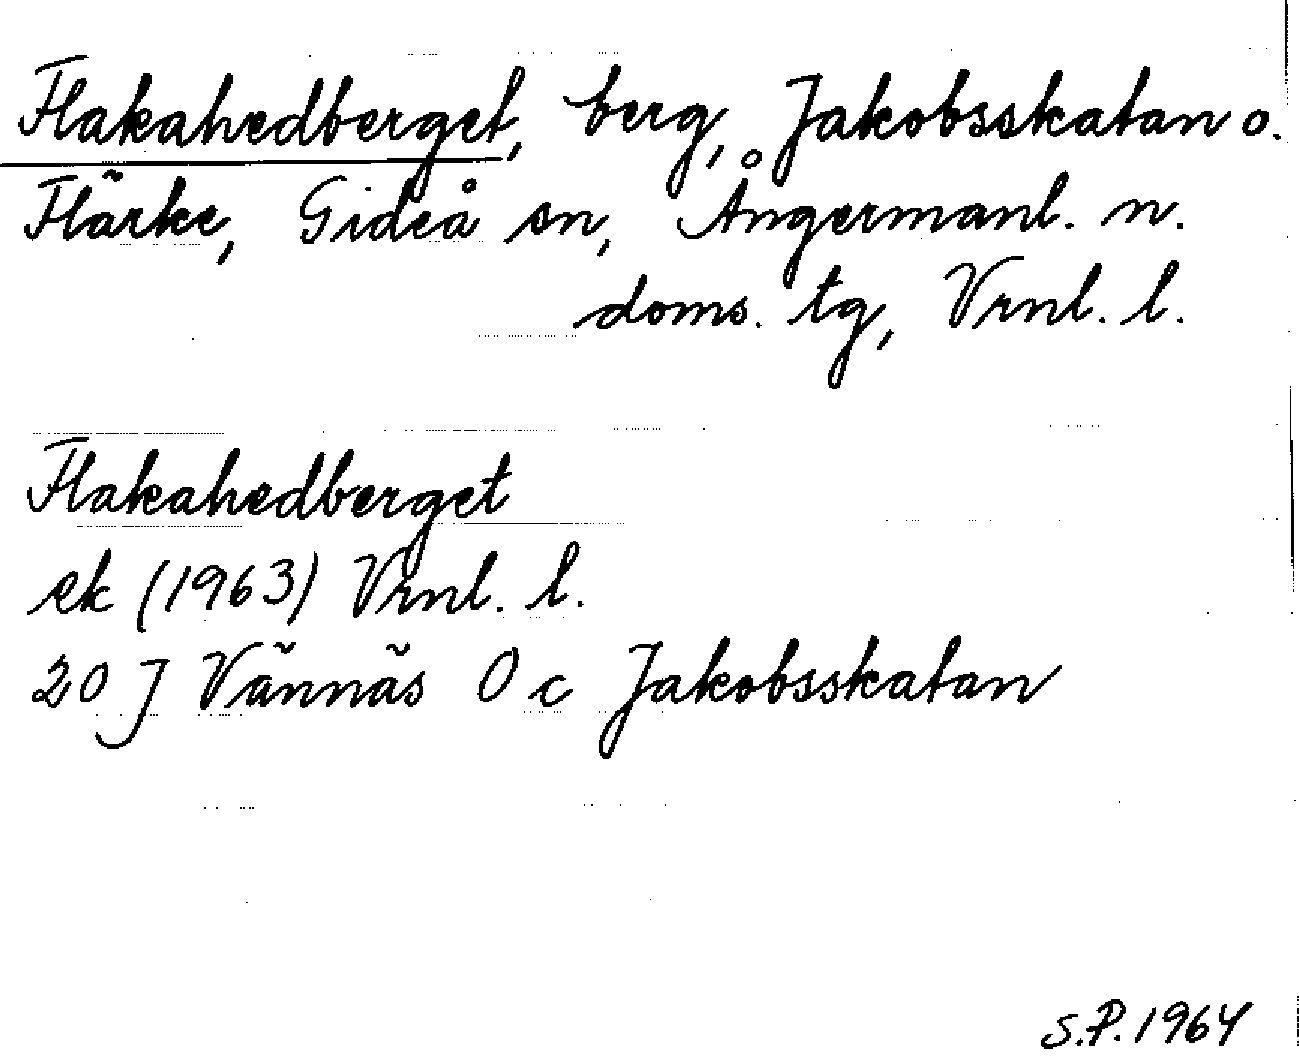 Flakahedberget, berg, Jakobsskatan o.
Flärke, Gideå sn, Ångermanl. n.
doms. tg, Vrnl. l.
Flakahedberget
ek (1963) Vrnl. l.
20 J Vännäs O c Jakobsskatan
S.P. 1964